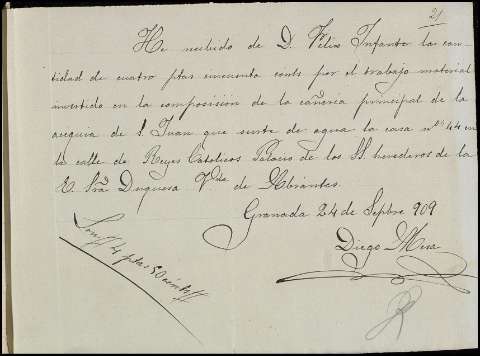 21
He recibido de D. Felix Infante las can-
tidad de cuatro ptas cincuenta cents por el trabajo material
invertido en la composición de la cañeria principal de la
acequia de S. Juan que surte de agua la casa nº 44 en
la calle de Reyes Catolicos Palacio de los SS. herederos de la
E. Sra Duquesa Vda de Abrantes.
Granada 24 de Sepbre 909
Diego Mesa
Son 4 ptas 50 cénts